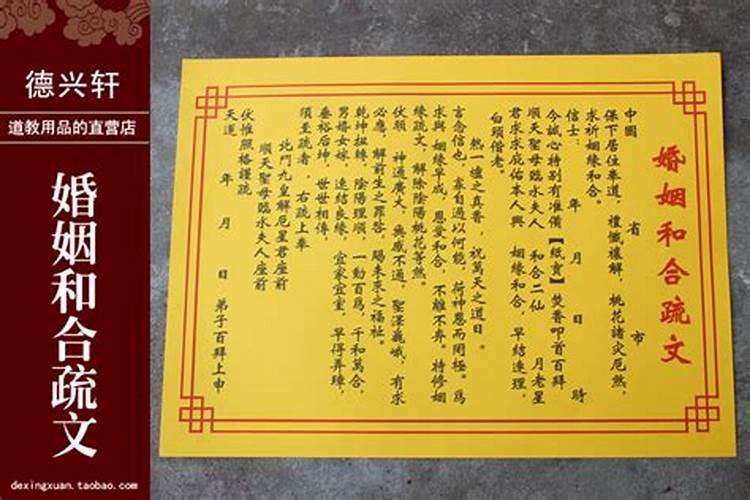 德兴轩
道教用品的直营店
婚姻和合疏文
dexingxuan.taobao.com
婚姻和合疏文
中國 省 市
保下居住奉道，禮懺禳解，桃花諸災厄煞，
求祈姻緣和合。
信士： 年 月 日 時
今誠心特別有準備【紙寶】焚香叩首百拜
順天聖母臨水夫人 和合二仙 月老星
君求求庇佑本人與 姻緣和合，早結連理，
白頭偕老。
熱一爐之真香，祝萬天之道日。
言念信也，拿自過以何能，荷神恩而罔極。爲
求與 姻緣早成，恩愛和合，不離不弃。特修姻
緣疏文，解除陰陽桃花等煞。
伏願 神通廣大，無感不通，聖澤巍峨，有求
必應，解前生之罪咎，賜未來之福祉。
乾坤扭轉，陰陽理順，一動百爲，千和萬合，
男婚女嫁，速結良緣，宜家宜室，早得弄璋，
垂裕后坤，世世相傳，
須至疏者，右疏上奉
北鬥九皇解厄星君座前
順天聖母臨水夫人座前
伏惟照格謹疏
天運 年 月 日 弟子百拜上申